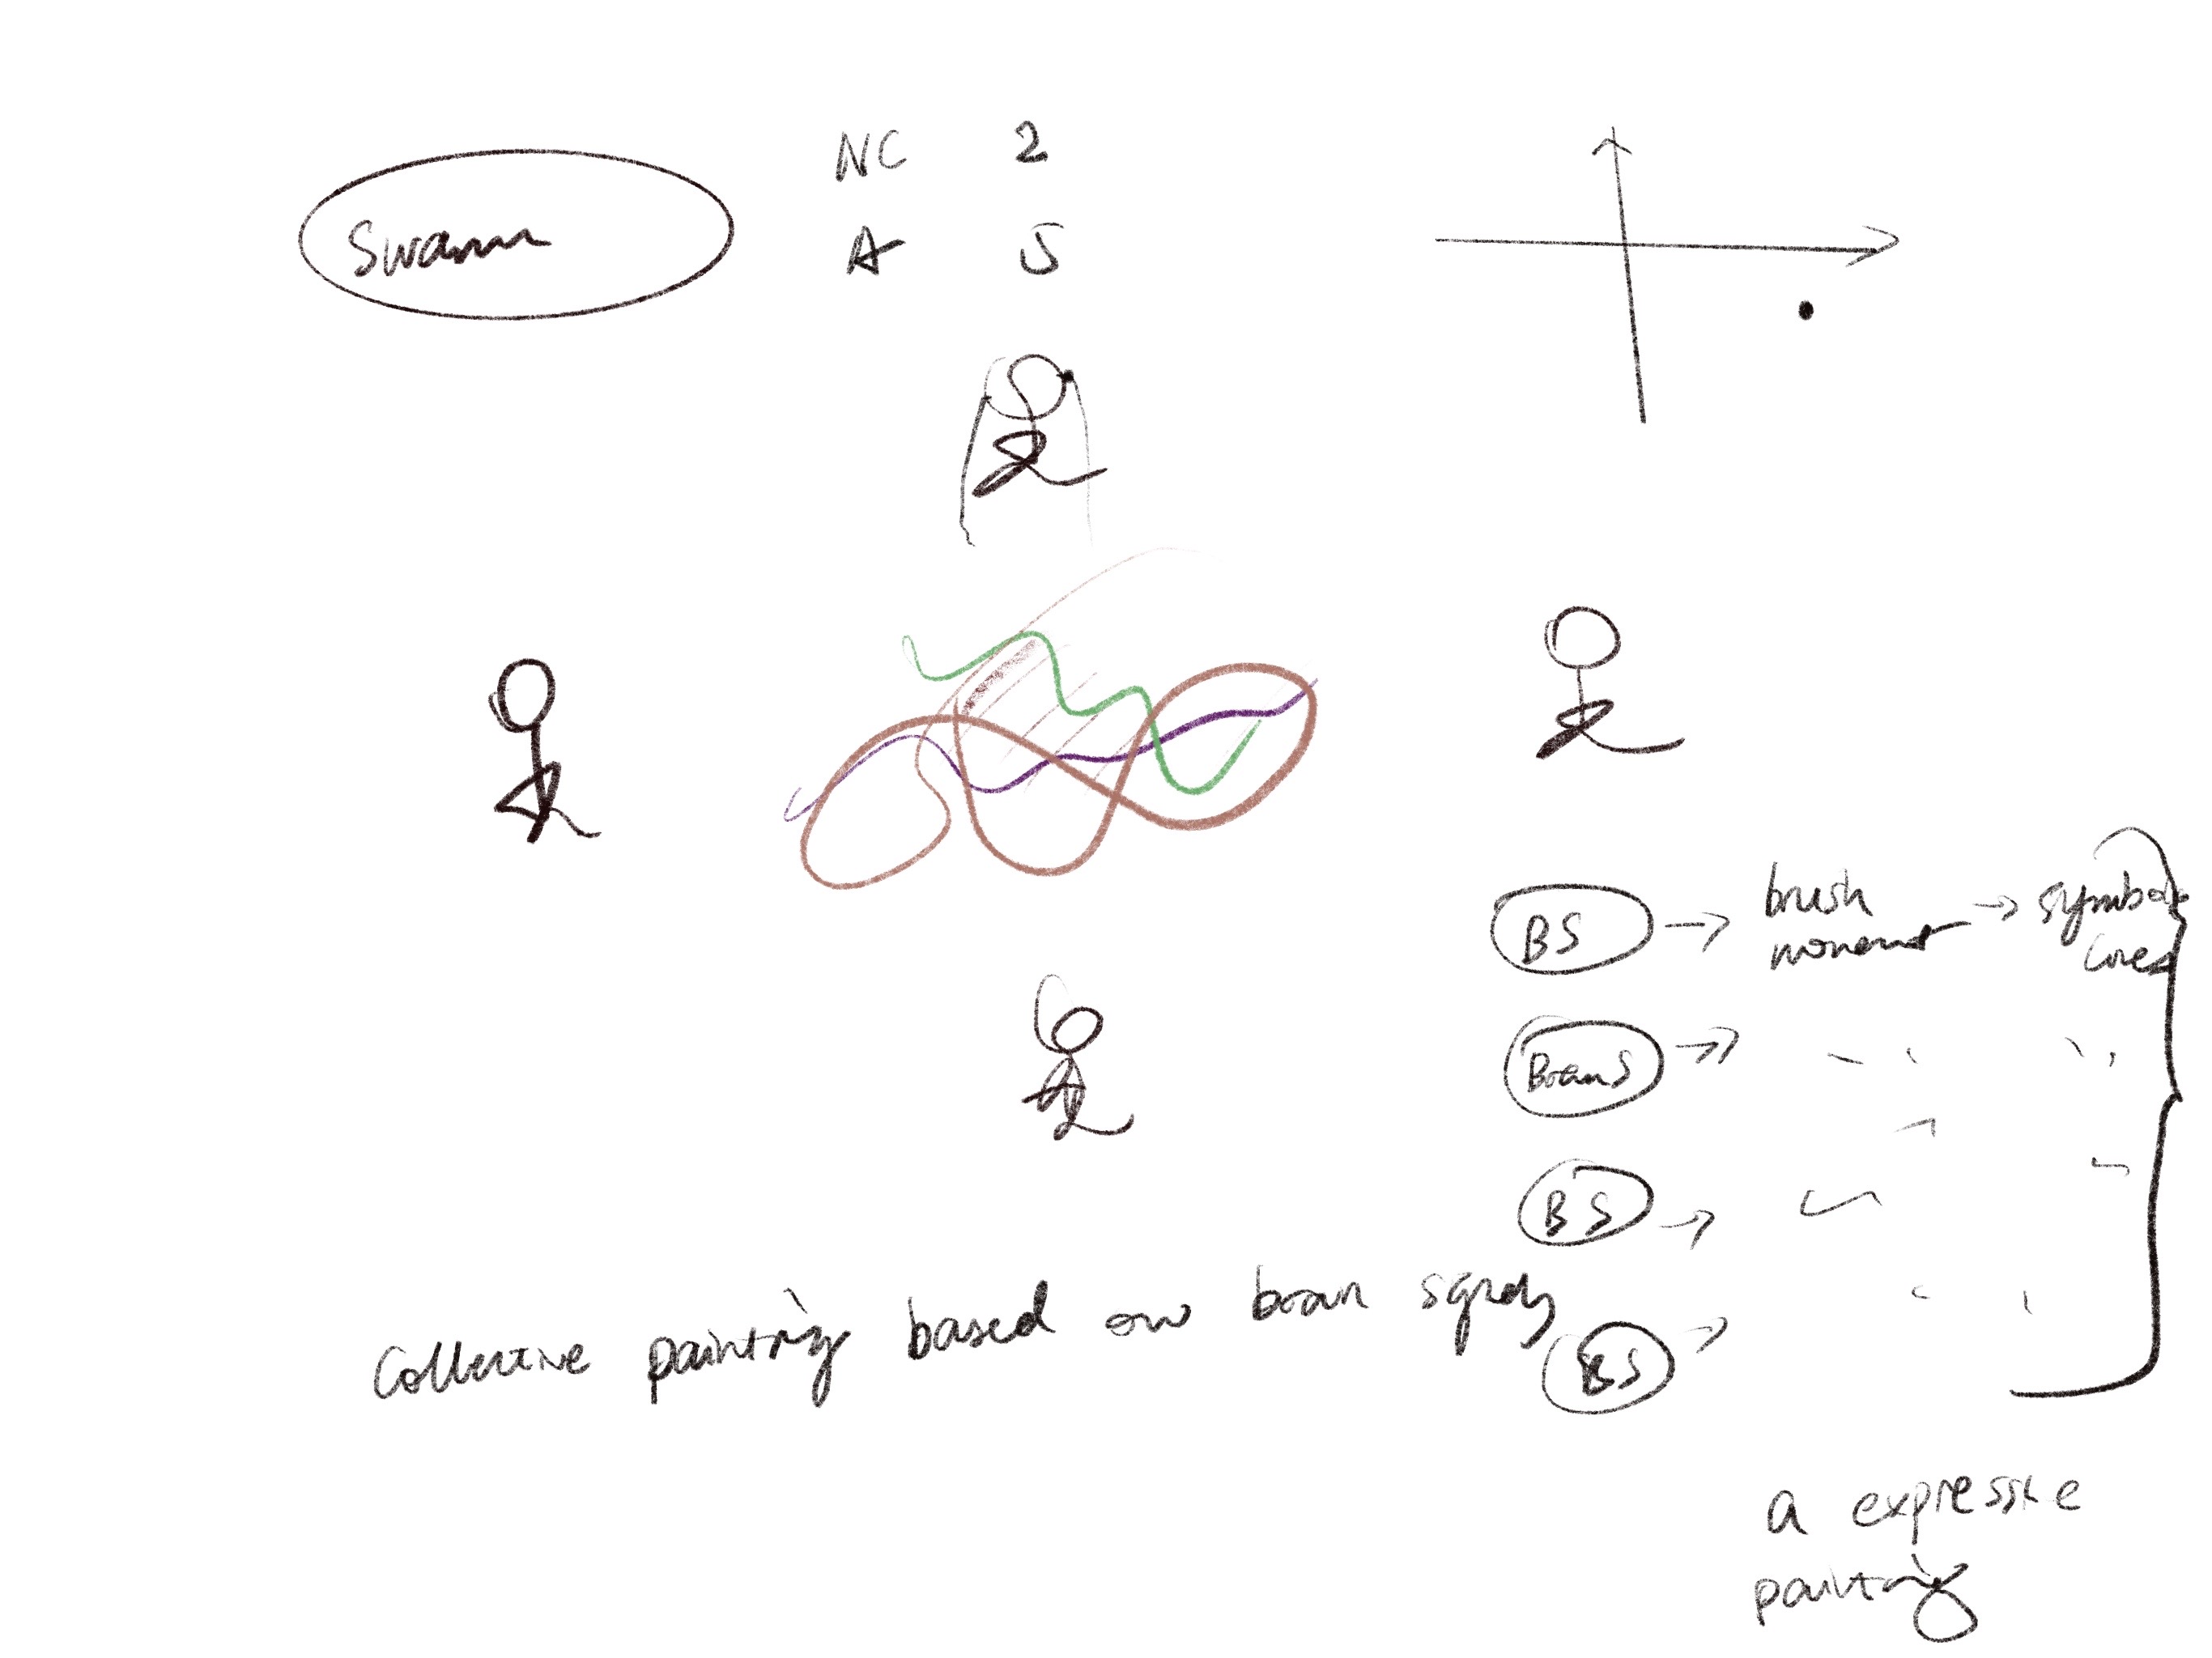 Swarm
NC 2
A 5
BS → brush movement → symbols
lines
BrainS →
BS →
Collective painting based on brain signals
BS →
a expressive
painting